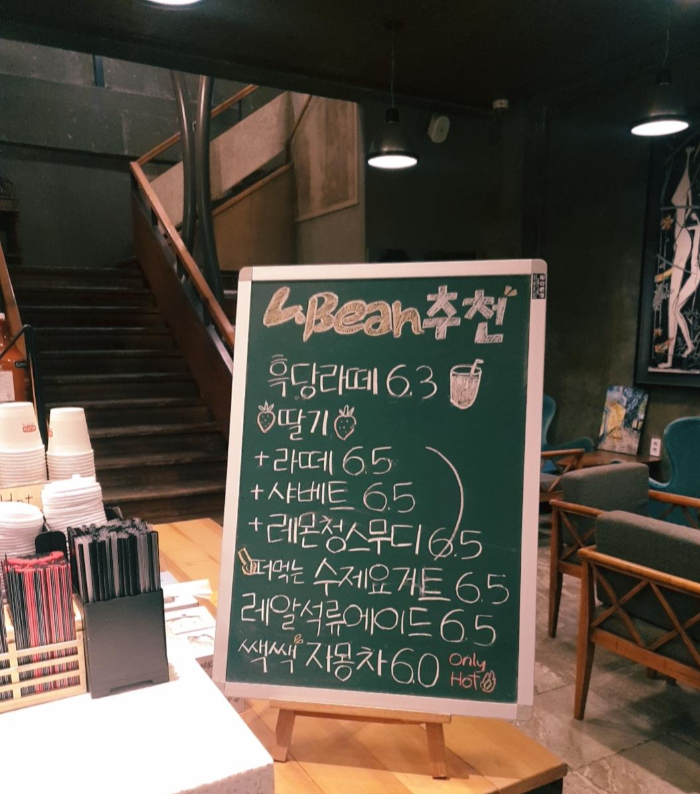 L.Bean추천
흑당라떼 6.3
딸기
+라떼 6.5
+샤베트 6.5
+레몬청스무디 6.5
떠먹는 수제요거트 6.5
레알석류에이드 6.5
쌕쌕 자몽차 6.0 Only
Hot